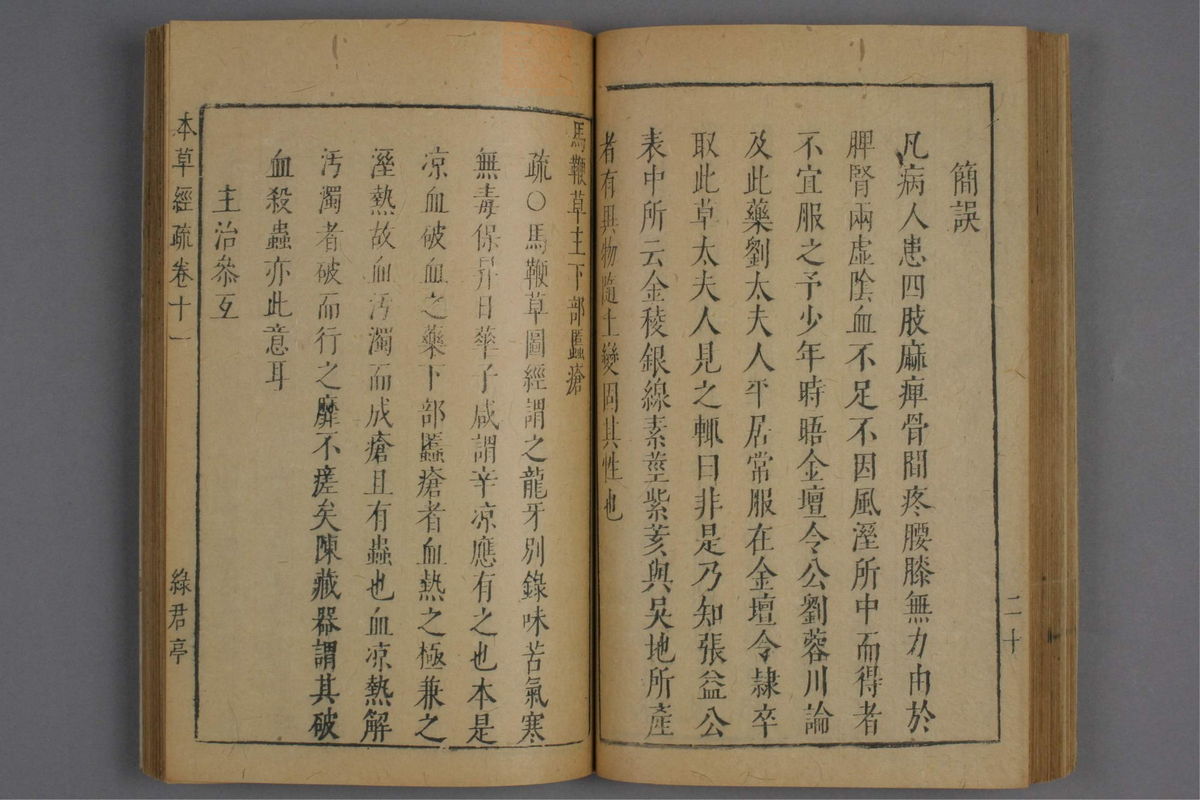 簡誤
凡病人患四肢麻痺骨間疼腰膝無力由於
脾腎兩虛陰血不足不因風溼所中而得者
不宜服之予少年時晤金壇令公劉蓉川論
及此藥劉太夫人平居常服在金壇令隷卒
取此草太夫人見之輒曰非是乃知張益公
表中所云金稜銀線素莖紫荄與吳地所產
者有異物隨土變固其性也
二十
馬鞭草主下部䘌瘡
疏○馬鞭草圖經謂之龍牙別錄味苦氣寒
無毒保昇日華子咸謂辛凉應有之也本是
凉血破血之藥下部䘌瘡者血熱之極兼之
溼熱故血汚濁而成瘡且有蟲也血凉熱解
汚濁者破而行之靡不瘥矣陳藏器謂其破
血殺蟲亦此意耳
主治參互
本草經疏卷十一
綠君亭